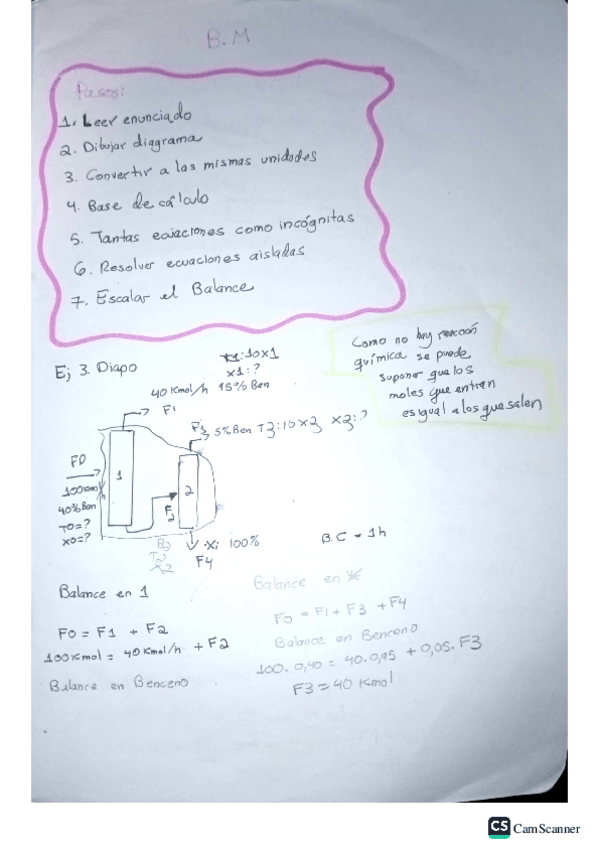 B.M
Pasos:
1. Leer enunciado
2. Dibujar diagrama
3. Convertir a las mismas unidades
4. Base de cálculo
5. Tantas ecuaciones como incógnitas
6. Resolver ecuaciones aisladas
7. Escalar el Balance
Ej 3. Diapo
:10x1
x1:?
40 Kmol/h 95% Ben
F1
Como no hay reacción
química se puede
suponer que los
moles que entran
es igual a los que salen
F3 5% Ben T3:10x3 x3:?
F0
1
100Kmol
40% Ben
T0=?
x0=?
2
F2
B2
T2
X2
Xi 100%
F4
B.C = 1h
Balance en 1
F0 = F1 + F2
100Kmol = 40 Kmol/h + F2
Balance en Benceno
Balance en
F0 = F1 + F3 + F4
Balance en Benceno
100. 0,40 = 40.0,95 + 0,05. F3
F3 = 40 Kmol
CS CamScanner